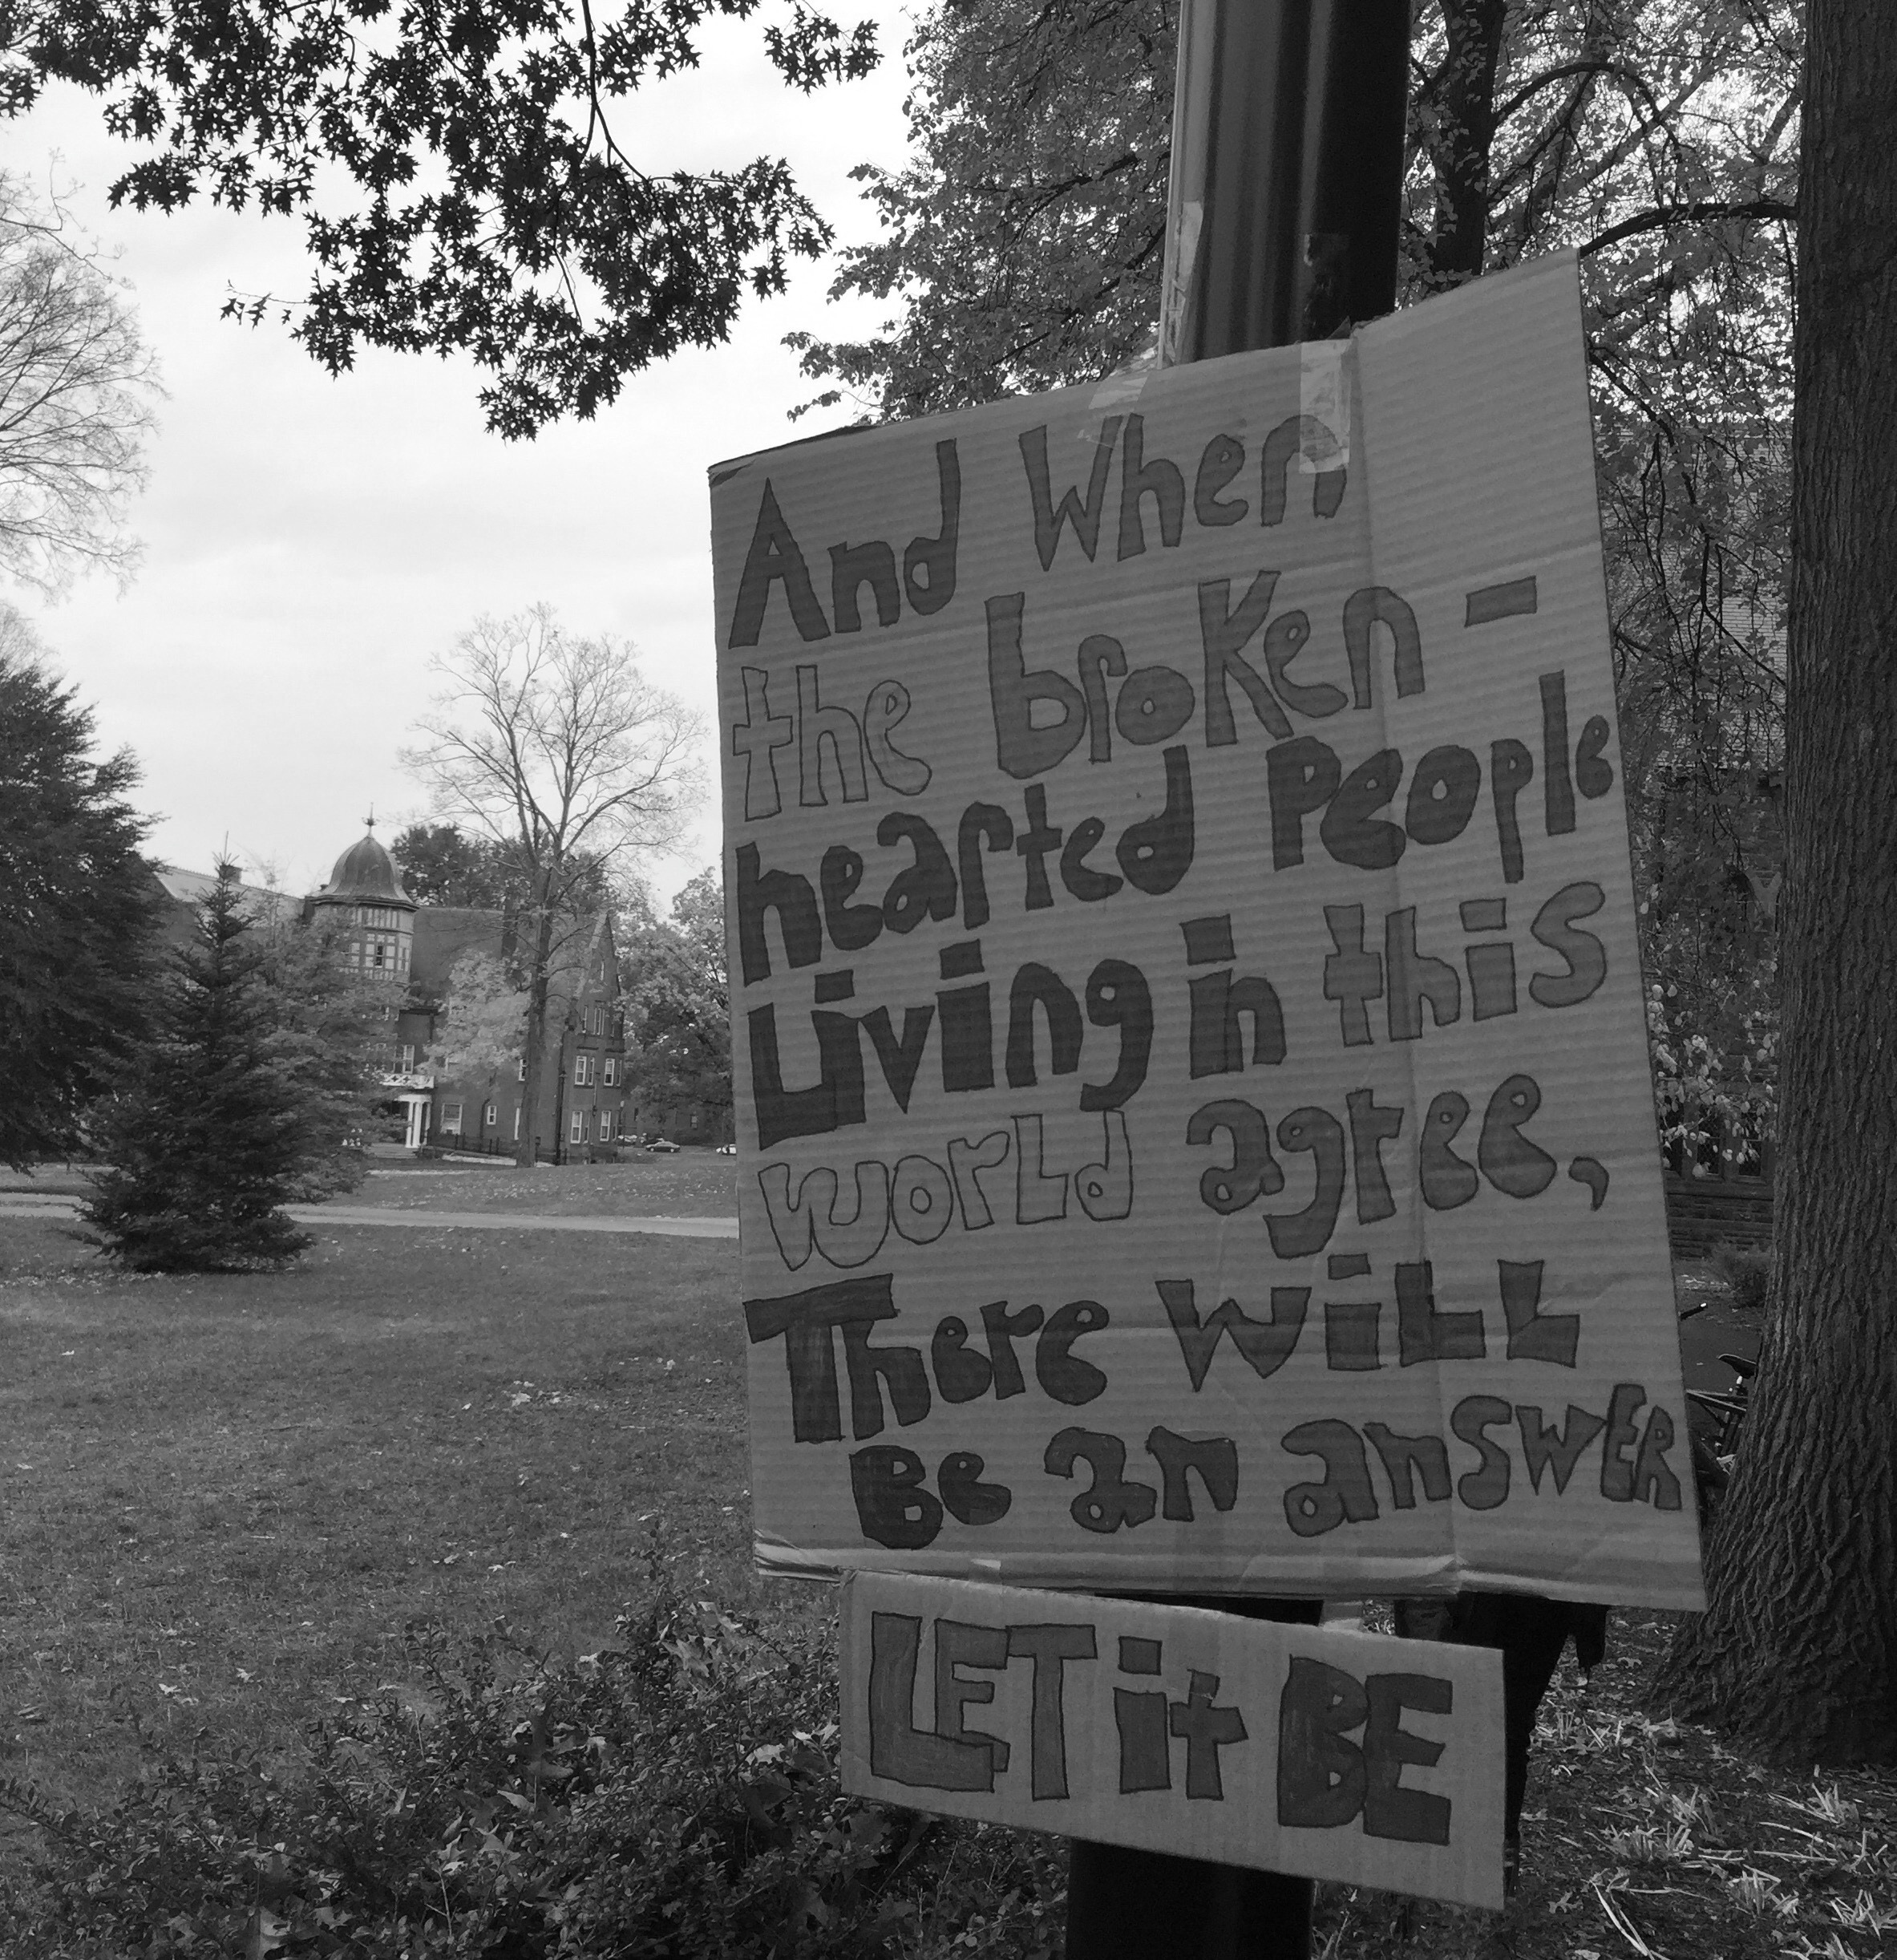 And When
the broKen -
hearted People
Living in this
world agree,
There WiLL
Be an answER
LET it BE